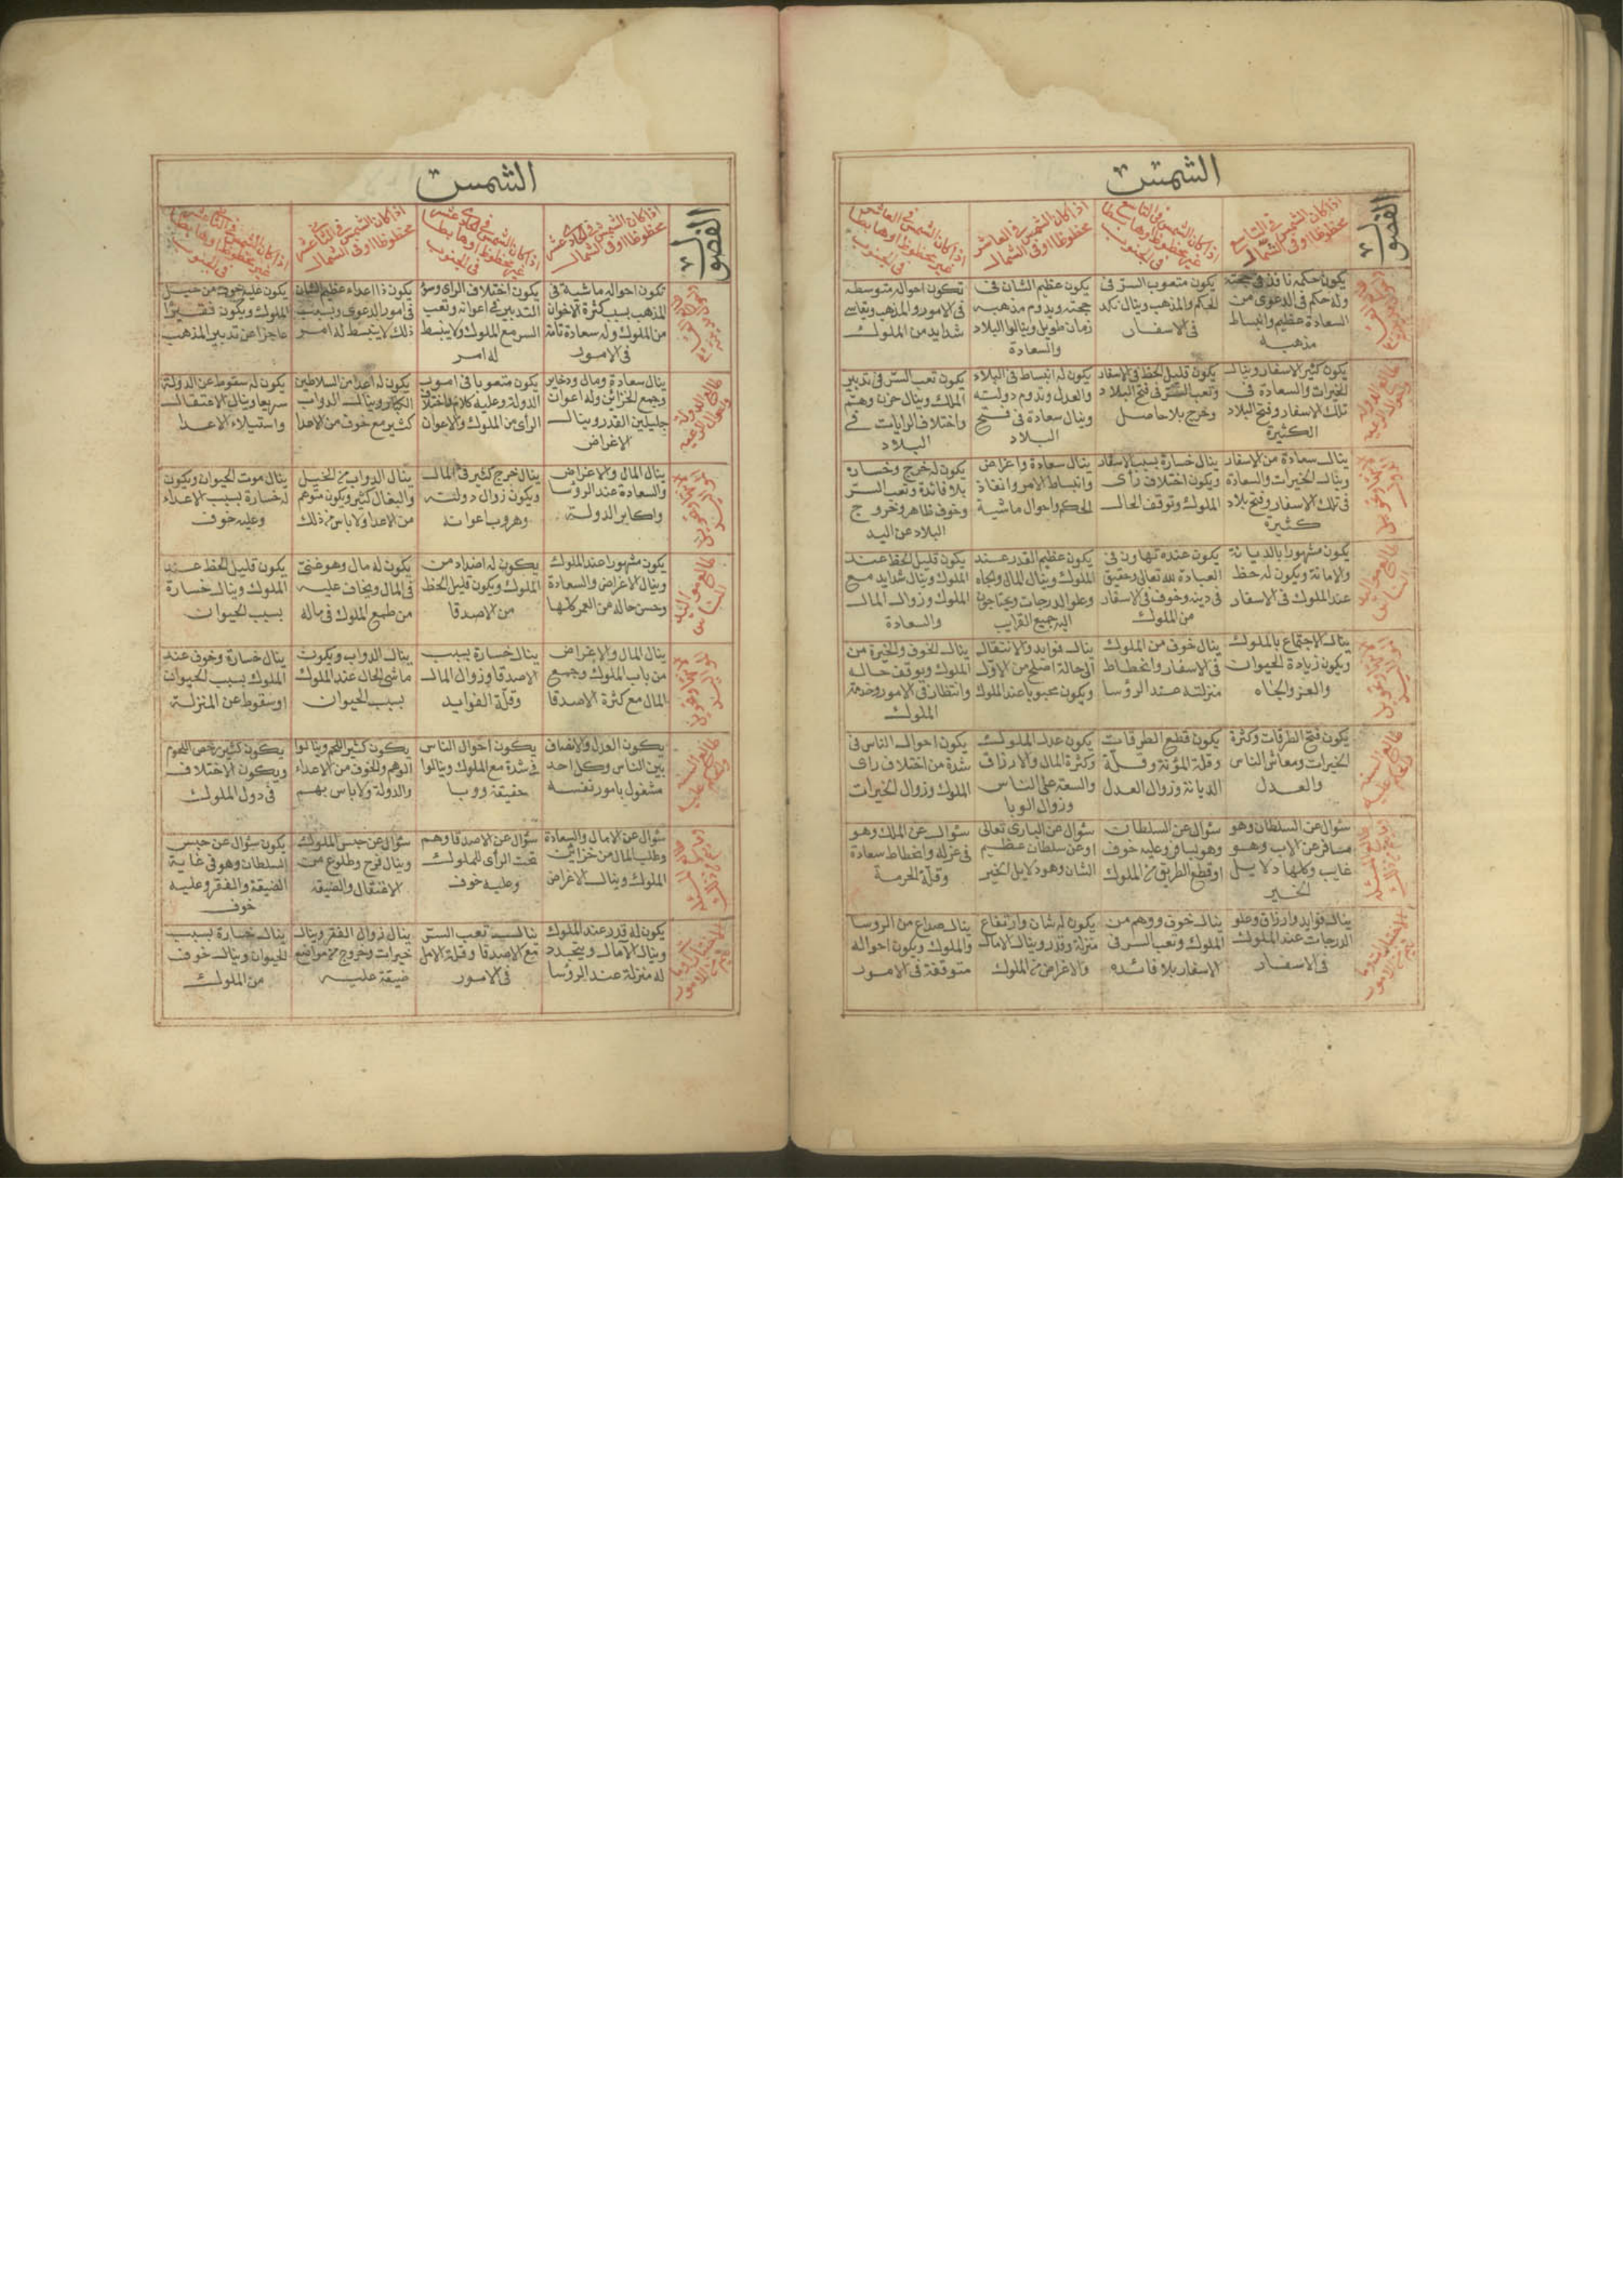 الشمس
الفصول
اذا كان الشمس فى التاسع
محظوظا او فى الشمال
اذا كان الشمس فى التاسع
غير محظوظ او هابطا
فى الجنوب
اذا كان الشمس فى العاشر
محظوظا او فى الشمال
اذا كان الشمس فى العاشر
غير محظوظ او هابطا
فى الجنوب
يكون حكمه نافذ فى حجته
وله حكم فى الدعوى من
السعادة عظيم وانبساط
مذهبه
يكون متعوب السر فى
الحكم والمذهب وينال نكد
فى الاسفار
يكون عظيم الشان فى
حجته ويدوم مذهبه
زمان طويل وينالوا البلاد
والسعادة
تكون احواله متوسطه
فى الامور والمذهب ويقاسى
شدايد من الملوك
طالع الدولة
يكون كثير الاسفار وينال
الخيرات والسعادة فى
تلك الاسفار وفتح البلاد
الكثيرة
يكون قليل الحظ فى الاسفار
وتعب السر فى فتح البلاد
وخرج بلا حاصل
يكون له انبساط فى البلاد
والعدل وتدوم دولته
وينال سعادة فى فتح
البلاد
يكون تعب السر فى تدبير
الملك وينال حزن وهم
واختلاف الرايات فى
البلاد
ينال سعادة من الاسفار
وينال الخيرات والسعادة
فى تلك الاسفار وفتح بلاد
كثيرة
ينال خسارة بسبب الاسفار
ويكون اختلاف رأى
الملوك وتوقف الحال
ينال سعادة واغراض
وانبساط الامر وانفاذ
الحكم واحوال ماشية
يكون له خرج وخساره
بلا فائدة وتعب السر
وخوف ظاهر وخروج
البلاد عن اليد
طالع مواليد
الناس
يكون مشهورا بالديانة
والامانة ويكون له حظ
عند الملوك فى الاسفار
يكون عنده تهاون فى
العبادة لله تعالى وحقيق
فى دينه وخوف فى الاسفار
من الملوك
يكون عظيم القدر عند
الملوك وينال المال والجاه
وعلو الدرجات ويحتاجون
اليه جميع القرايب
يكون قليل الحظ عند
الملوك وينال شدايد مع
الملوك وزوال المال
والسعادة
ينال الاجتماع بالملوك
ويكون زيادة الحيوان
والعز والجاه
ينال خوف من الملوك
فى الاسفار وانحطاط
منزلته عند الرؤسا
ينال فوايد والانتقال
الى حالة اصلح من الاول
ويكون محبوبا عند الملوك
ينال الخوف والخيرة من
الملوك ويوقف حاله
وانتظار فى الامور وخدمة
الملوك
طالع السنة
يكون فتح الطرقات وكثرة
الخيرات ومعاش الناس
والعدل
يكون قطع الطرقات
وقلة المؤنة وقلة
الديانة وزوال العدل
يكون عدل الملوك
وكثرة المال والارزاق
والسعة على الناس
وزوال الوبا
يكون احوال الناس فى
شدة من اختلاف راى
الملوك وزوال الخيرات
سؤال عن السلطان وهو
مسافر عن الاب وهو
غايب وكلها دلايل
الخير
سؤال عن السلطان
وهو يسافر وعليه خوف
او قطع الطريق من الملوك
سؤال عن البارى تعالى
او عن سلطان عظيم
الشان وهو دلايل الخير
سؤال عن الملك وهو
فى عزلة وانحطاط سعادة
وقلة الحرمة
ينال فوايد وارزاق وعلو
الدرجات عند الملوك
فى الاسفار
ينال خوف ووهم من
الملوك وتعب السر فى
الاسفار بلا فائده
يكون له شان وارتفاع
منزلة وقدر وينال الامال
والاغراض من الملوك
ينال صداع من الروسا
والملوك ويكون احواله
متوقفة فى الامور
الشمس
الفصول
اذا كان الشمس فى الحادى عشر
محظوظا او فى الشمال
اذا كان الشمس فى الحادى عشر
غير محظوظ او هابطا
فى الجنوب
اذا كان الشمس فى الثانى عشر
محظوظا او فى الشمال
اذا كان الشمس فى الثانى عشر
غير محظوظ او هابطا
فى الجنوب
تكون احواله ماشية فى
المذهب بسبب كثرة الاخوان
من الملوك وله سعادة تامة
فى الامور
يكون اختلاف الراى وسؤ
التدبير فى اعوانه وتعب
السر مع الملوك ولا ينبسط
له امر
يكون ذا اعداء عظيم الشان
فى امور الدعوى وبسبب
ذلك لا ينبسط له امر
يكون عليه خوف من حبس
الملوك ويكون فقيرا
عاجزا عن تدبير المذهب
طالع الدولة
ينال سعادة ومال ودخاير
وجمع الخزائن وله اعوان
جليلين القدر وينال
الاغراض
يكون متعوبا فى امور
الدولة وعليه كلام لاختلاف
الرأى من الملوك والاعوان
يكون له اعدا من السلاطين
الكبار وينال الدواب
كثير مع خوف من الاعدا
يكون له سقوط عن الدولة
سريعا وينال الاعتقال
واستيلاء الاعدا
ينال المال والاغراض
والسعادة عند الرؤسا
واكابر الدولة
ينال خرج كثير فى المال
ويكون زوال دولته
وهروب اعوانه
ينال الدواب من الخيل
والبغال كثير ويكون متوهم
من الاعدا ولا باس من ذلك
ينال موت الحيوان ويكون
له خسارة بسبب الاعداء
وعليه خوف
طالع مواليد
الناس
يكون مشهورا عند الملوك
وينال الاغراض والسعادة
وحسن حاله من العمر كلها
يكون له اضداد من
الملوك ويكون قليل الحظ
من الاصدقا
يكون له مال وهو غنى
فى المال ويخاف عليه
من طمع الملوك فى ماله
يكون قليل الحظ عند
الملوك وينال خسارة
بسبب الحيوان
ينال المال والاغراض
من باب الملوك وجميع
المال مع كثرة الاصدقا
ينال خسارة بسبب
الاصدقا وزوال المال
وقلة الفوايد
ينال الدواب ويكون
ماشى الحال عند الملوك
بسبب الحيوان
ينال خسارة وخوف عند
الملوك بسبب الحيوان
او سقوط عن المنزلة
طالع السنة
يكون العدل والانصاف
بين الناس وكل احد
مشغول بامور نفسه
يكون احوال الناس
فى شدة مع الملوك وينالوا
حقيقة ووبا
يكون كثير اللحم وينالوا
الوهم والخوف من الاعداء
والدولة ولا باس بهم
يكون كثير رخص اللحوم
ويكون الاختلاف
فى دول الملوك
سؤال عن الامال والسعادة
وطلب المال من خزائن
الملوك وينال الاغراض
سؤال عن الاصدقا وهم
تحت الرأى الملوك
وعليه خوف
سؤال عن حبس الملوك
وينال فرح وطلوع من
الاعتقال والضيقة
يكون سؤال عن حبس
السلطان وهو فى غاية
الضيقة والفقر وعليه
خوف
يكون له قدر عند الملوك
وينال الآمال ويتجدد
له منزلة عند الرؤسا
ينال تعب السر
مع الاصدقا وقلة الامل
فى الامور
ينال زوال الفقر وينال
خيرات وخروج من مواضع
ضيقة عليه
ينال خسارة بسبب
الحيوان وينال خوف
من الملوك